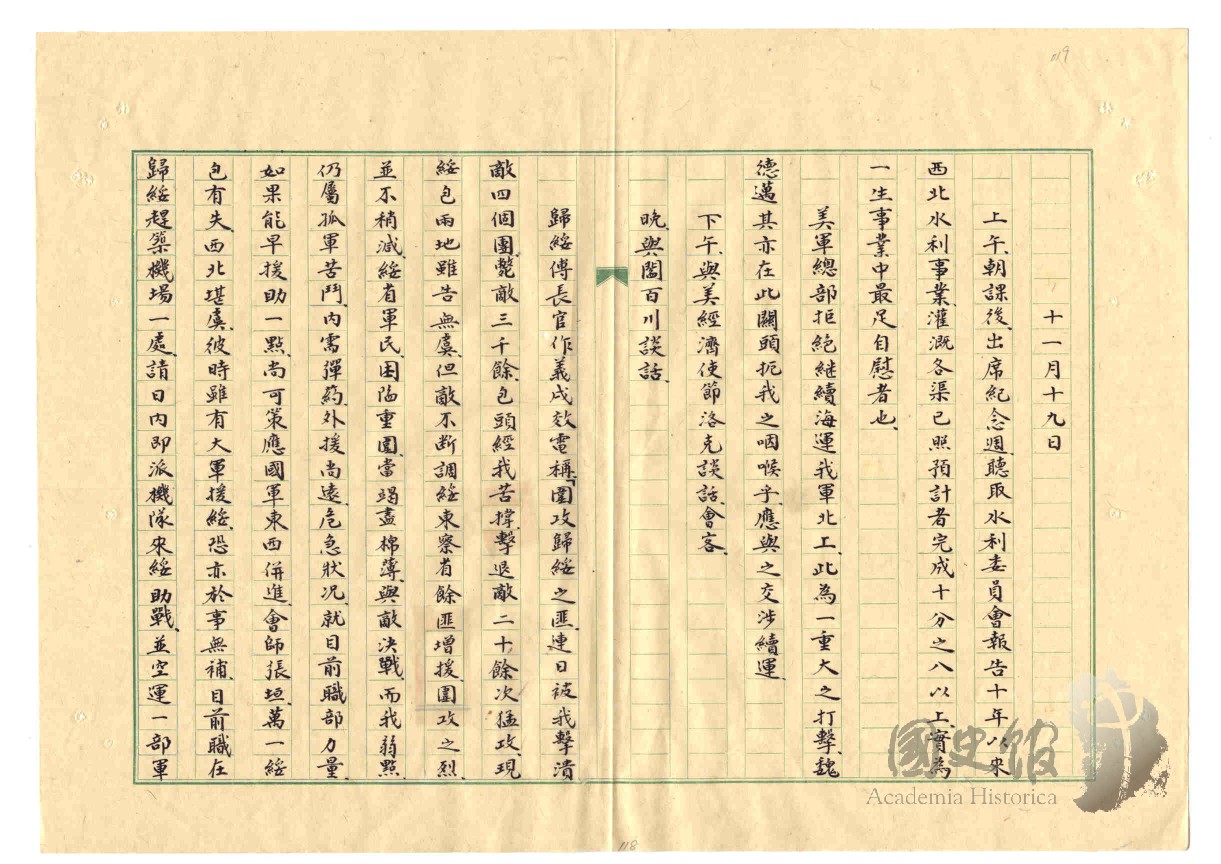 119
十一月十九日
上午、朝課後、出席紀念週、聽取水利委員會報告十年以來
西北水利事業、灌溉各渠已照預計者完成十分之八以上、實為
一生事業中最足自慰者也、
美軍總部拒絕繼續海運我軍北上、此為一重大之打擊、魏
德邁其亦在此關頭扼我之咽喉乎、應與之交涉續運、
下午、與美經濟使節洛克談話、會客、
晚、與閻百川談話、
歸綏傅長官作義戌效電稱、「圍攻歸綏之匪、連日被我擊潰
敵四個團、斃敵三千餘、包頭經我苦撐、擊退敵二十餘次猛攻、現
綏包兩地雖告無虞、但敵不斷調綏東察省餘匪增援、圍攻之烈、
並不稍減、綏省軍民、困陷重圍、當竭盡棉薄、與敵決戰、而我弱點、
仍屬孤軍苦鬥、內需彈葯、外援尚遠、危急狀况、就目前職部力量、
如果能早援助一點、尚可策應國軍東西併進、會師張垣、萬一綏
包有失、西北堪虞、彼時雖有大軍援綏、恐亦於事無補、目前職在
歸綏趕築機場一處、請日內即派機隊來綏助戰、並空運一部軍
118
國史館
Academia Historica